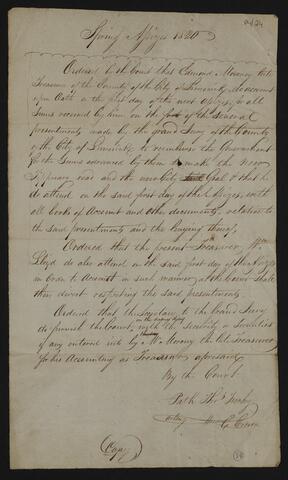 Spring Assizes 1820
Ordered by the Court that Edmond Morony late
Treasurer of the County of the City of Limerick, do account
upon Oath on the first day of the next Assizes, for all
Sums received by him on the foot of the several
presentments made by the grand Jury of the County
of the City of Limerick to reimburse the Government
for the Sums advanced by them to make the New
road and the new City Gaol & that he
do attend on the said first day of the Assizes, with
all books of Account and other documents, relative to
the said presentments and the levying thereof,
Ordered that the present Treasurer Wm
Lloyd do also attend on the said first day of the Assizes
in Order to Account in such manner as the Court shall
then direct respecting the said presentments.
Ordered that the Secretary to the Grand Jury
do furnish the Court, with the Security or Securities
of any entered into by Mr Morony the late Treasurer
for his Accounting as Treasurer aforesaid
By the Court
Crown
(Copy)